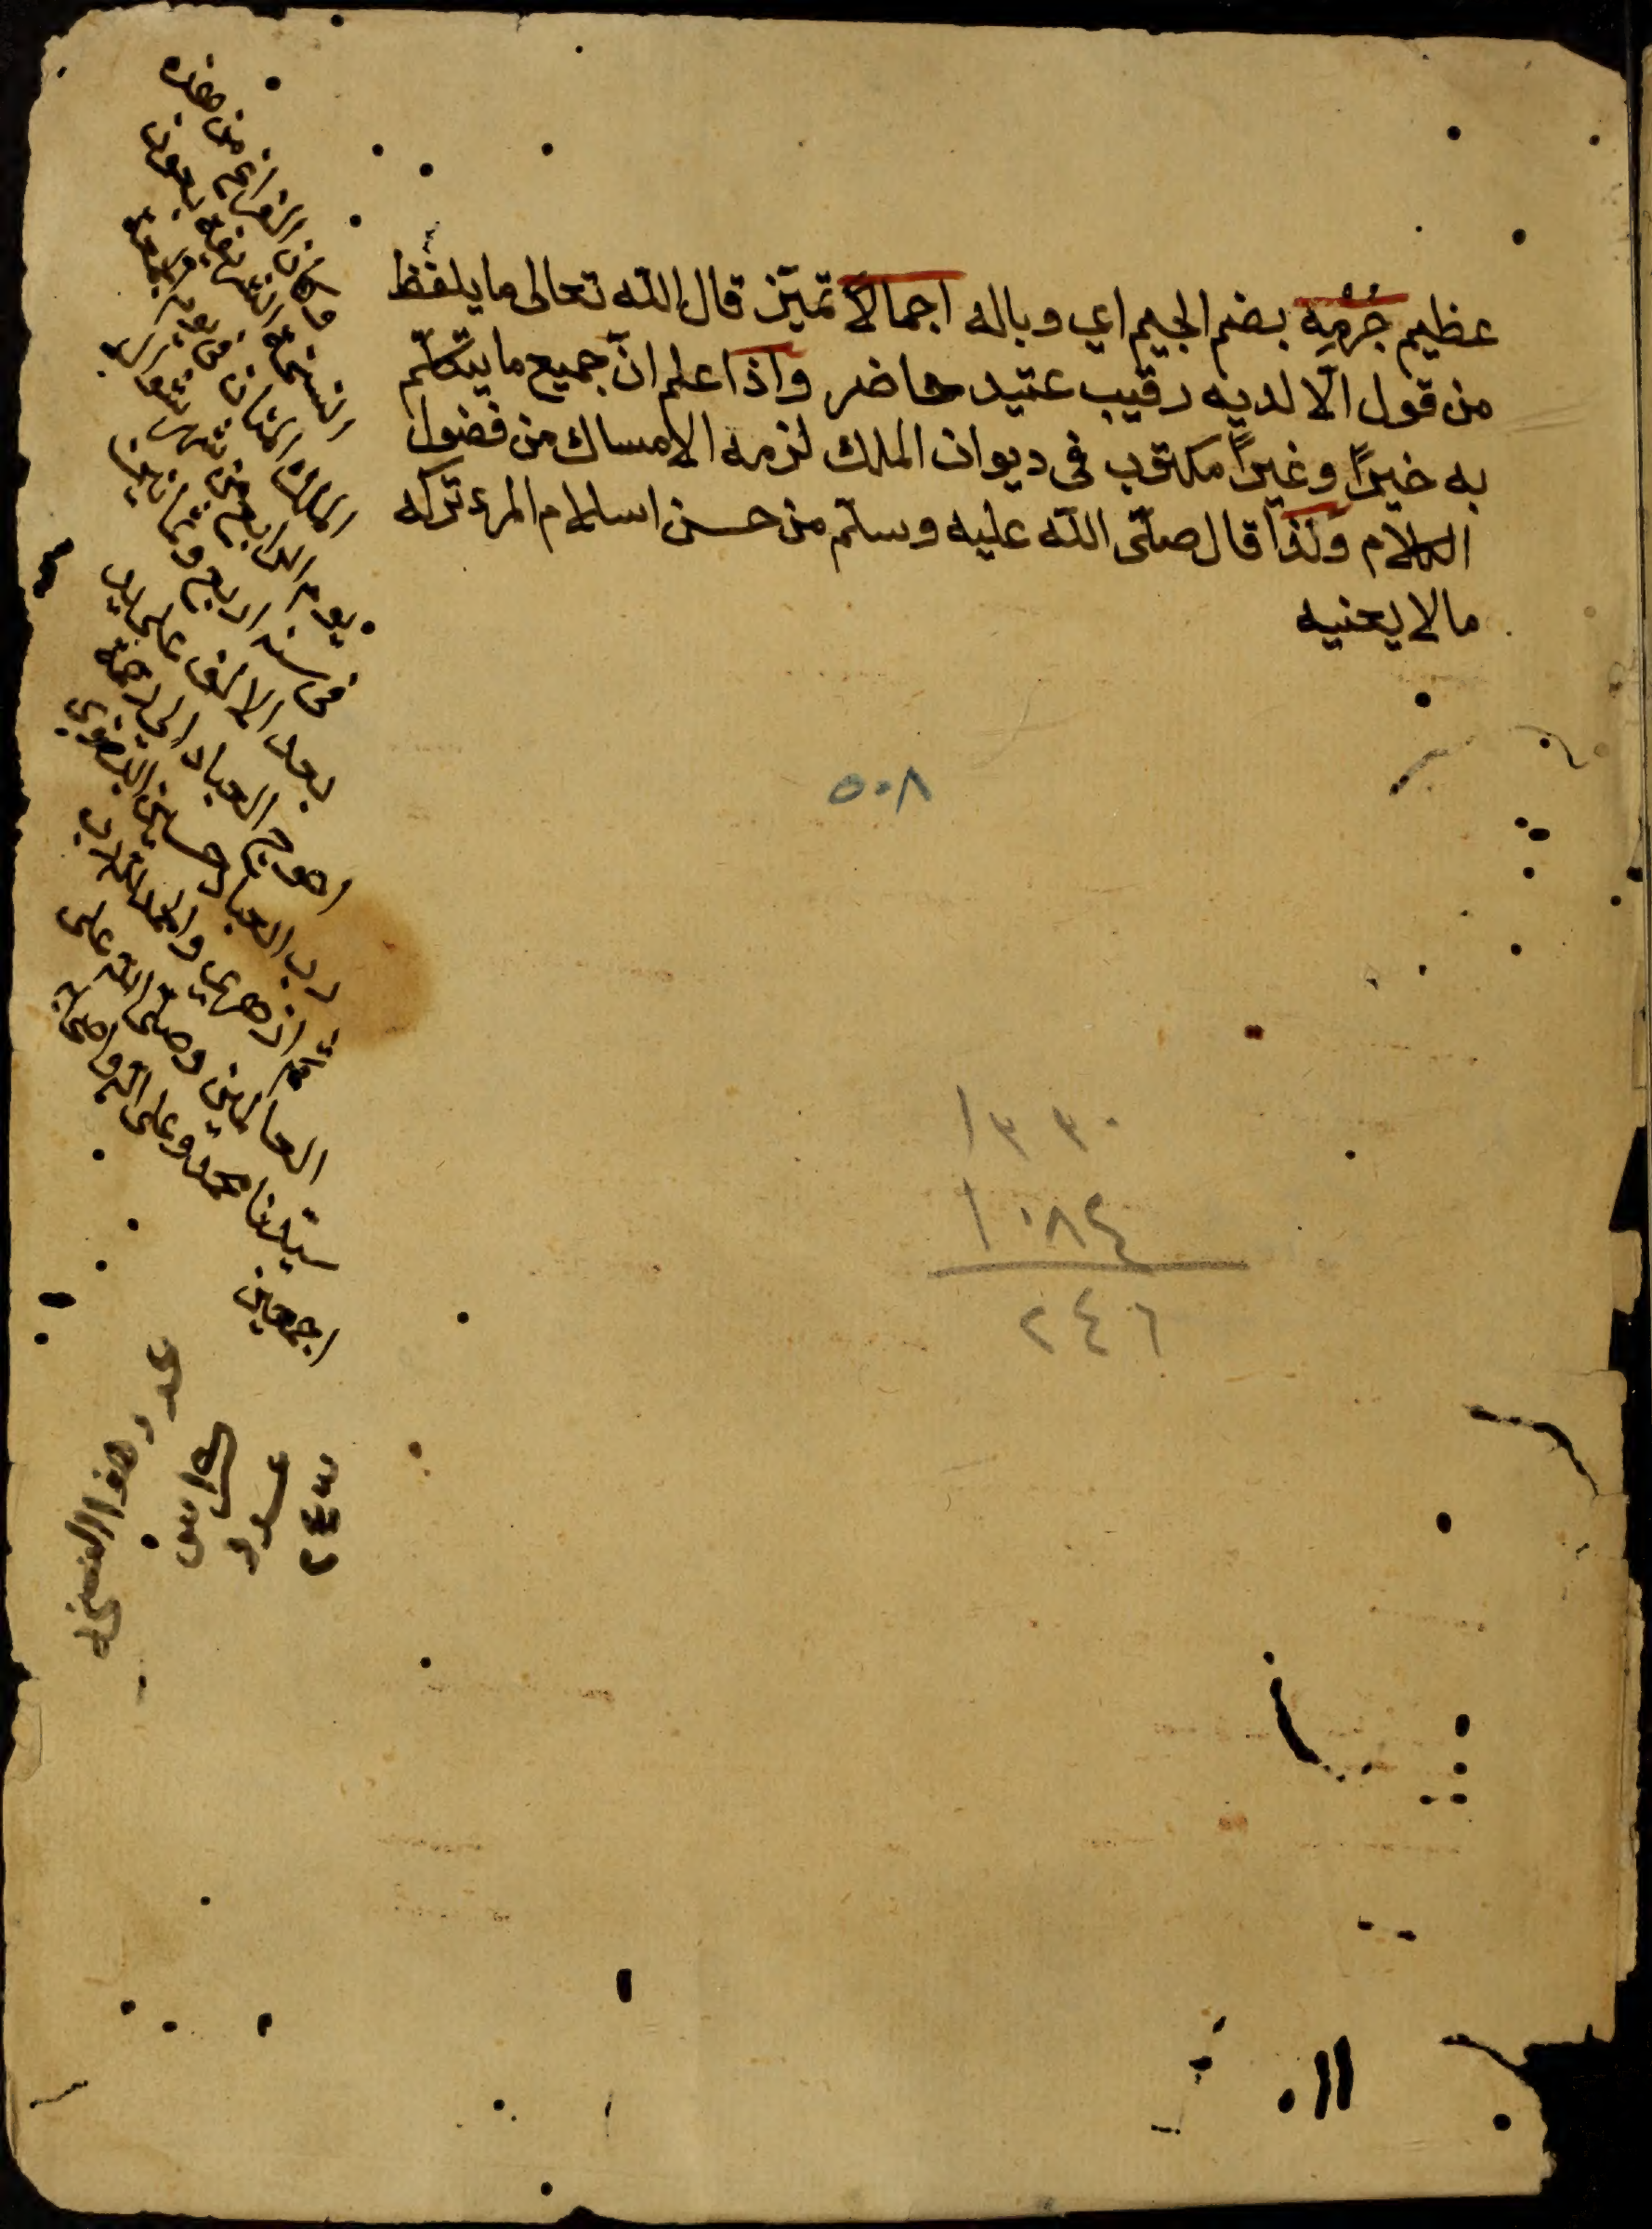 عظيم جُرْمُه بضم الجيم اي وباله اجمالاً تميّز قال الله تعالى ما يلفظ
من قول الّا لديه رقيب عتيد حاضر واذا علم انّ جميع ما يتكلّم
به خيراً وغيراً مكتوب في ديوان الملك لزمه الامساك من فضول
الكلام ولذا قال صلّى الله عليه وسلّم من حسن اسلام المرء تركه
مالا يعنيه
وكان الفراغ من هذه
النسخة الشريفة بعون
الملك المنان في يوم الجمعة
يوم الرابع من شهر شوال
في سنة اربع وثمانين
بعد الالف على يد
احوج العباد الى رحمة
رب العباد حسين
ازهري والحمد لله رب
العالمين وصلى الله على
سيدنا محمد وعلى اله واصحابه
اجمعين
عدد هذا النسخه
كراس
عدد
٢٤٣
٥٠٨
١٣٣٠
١٠٨٤
٢٤٦